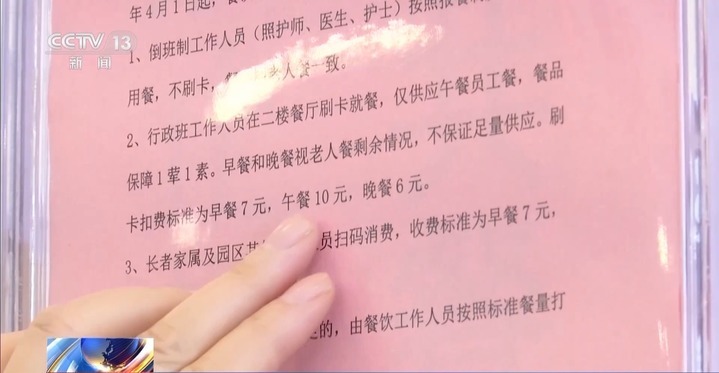 CCTV 13
新闻
年4月1日起，餐
1、倒班制工作人员（照护师、医生、护士）按照报餐
用餐，不刷卡，餐 老人餐一致。
2、行政班工作人员在二楼餐厅刷卡就餐，仅供应午餐员工餐，餐品
保障1荤1素。早餐和晚餐视老人餐剩余情况，不保证足量供应。刷
卡扣费标准为早餐7元，午餐10元，晚餐6元。
3、长者家属及园区其 员扫码消费，收费标准为早餐7元，
的，由餐饮工作人员按照标准餐量打